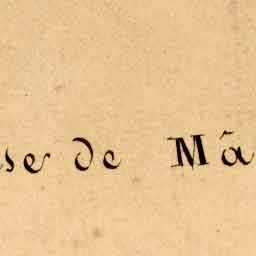 se de Mâ